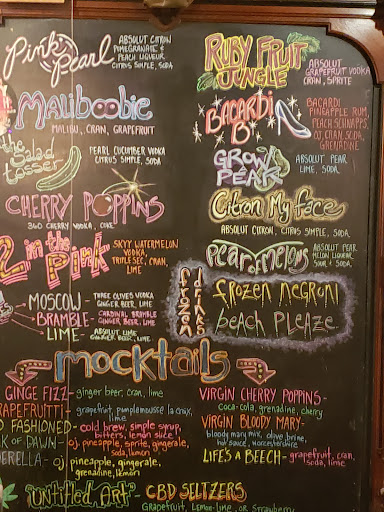 Pink Pearl
ABSOLUT CITRON
POMEGRANATE &
PEACH LIQUEUR
CITRUS SIMPLE, SODA
MALIBOOBIE
MALIBU, CRAN, GRAPEFRUIT
the Salad
tosser
PEARL CUCUMBER VODKA
CITRUS SIMPLE, SODA
CHERRY POPPINS
360 CHERRY VODKA, COKE
2 in the PINK
SKYY WATERMELON
VODKA,
TRIPLE SEC, CRAN,
LIME
MOSCOW - THREE OLIVES VODKA
GINGER BEER, LIME
BRAMBLE - CARDINAL BRAMBLE
GINGER BEER, LIME
LIME - ABSOLUT LIME
GINGER BEER, LIME
RUBY FRUIT
JUNGLE
ABSOLUT
GRAPEFRUIT VODKA
CRAN, SPRITE
BACARDI
B
BACARDI
PINEAPPLE RUM,
PEACH SCHNAPPS,
OJ, CRAN, SODA,
GRENADINE
GROW A
PEAR
ABSOLUT PEAR
LIME, SODA
Citron My Face
ABSOLUT CITRON, CITRUS SIMPLE, SODA
Pear of Melons
ABSOLUT PEAR
MELON LIQUEUR
SOUR & SODA
frozen
drinks
frozen negroni
beach pleaze
mocktails
GINGE FIZZ - ginger beer, cran, lime
RAPEFRUITTI - grapefruit, pamplemousse la croix,
lime
D FASHIONED - cold brew, simple syrup,
bitters, lemon slice
K OF DAWN - oj, pineapple, sprite, gingerale,
soda, lemon
DERELLA - oj, pineapple, gingerale,
grenadine, lemon
VIRGIN CHERRY POPPINS -
coca-cola, grenadine, cherry
VIRGIN BLOODY MARY -
bloody mary mix, olive brine,
hot sauce, worcestershire
LIFE'S A BEECH - grapefruit, cran,
soda, lime
"Untitled Art" - CBD SELTZERS
GRAPEFRUIT, LEMON-LIME, OR STRAWBERRY